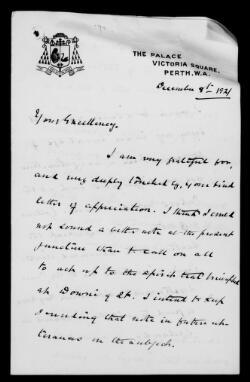 THE PALACE
VICTORIA SQUARE,
PERTH, W.A.
December 8th 1921
Your Excellency,
I am very grateful for,
and very deeply touched by, your kind
letter of appreciation. I think I could
not sound a better note at the present
juncture than to call on all
to act up to the spirit that
at Downing St. I intend to keep
sounding that note in future ut-
terances on the subject.